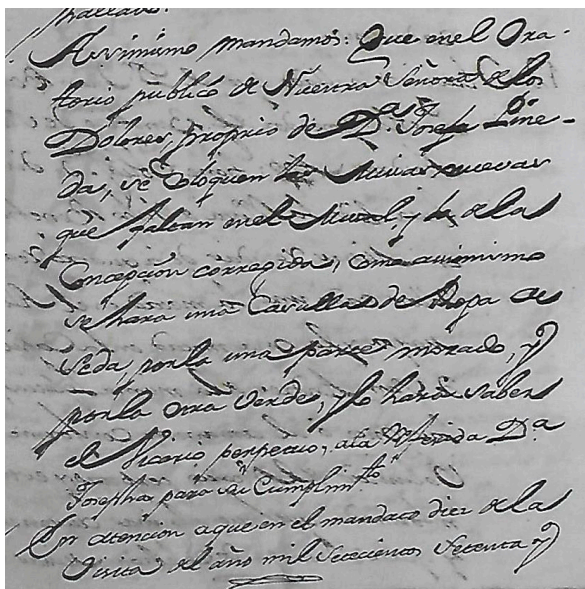 hallavo.
Assimismo mandamos: Que en el Ora-
torio publico de Nuestra Señora de los
Dolores, proprio de D.ª Josefa Pine-
da, se coloquen las Missas nuevas
que faltan en el Missal, y la de la
Concepcion corregida, como assimismo
se hara una Casulla de Ropa de
seda, por la una parte morado, y
por la otra Verde, y lo hará saber
el Vicario perpetuo, a la referida D.ª
Josepha para su Cumplim.to
En atencion a que en el mandato diez de la
Visita del año mil Setecientos Setenta y